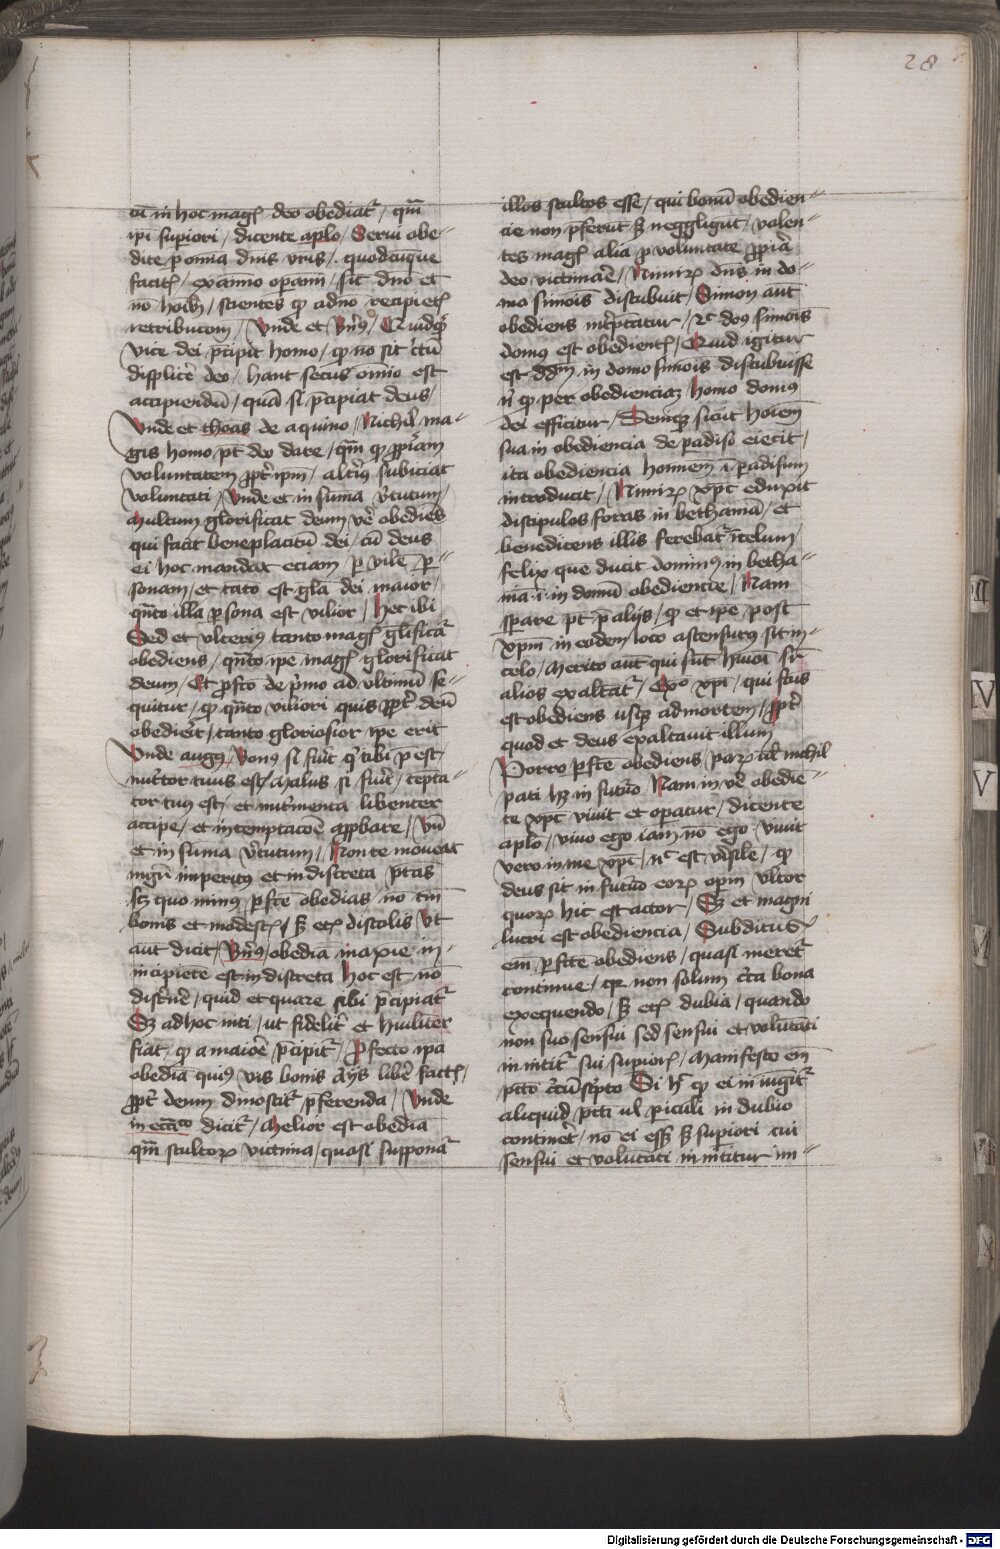 28
cū in hoc maḡ deo obediat᷑ / qm̄
ip̄i sup̄iori / dicente aplo / Serui obe-
dite p om̄ia dn̄is vr̄is / quodcūque
facit / ex aīmo opam̄ / sic dn̄o et
nō hoībꝫ / scientes qꝫ a dn̄o recipiet
retribucom̄ / Vnde et Bn̄rꝰ / Quidqͥd
vice dei p̄cipit homo / qꝫ nō sit c̄tū
displicē deo / haut secus om̄io est
accipiendū / quā si p̄cipiat deus /
Vnde et thoās de aquino / Nichil ma-
gis homo pt̄ deo dare / qm̄ qꝫ ꝓp̄iam
voluntatem ꝓpt̄ ip̄m / alt̄iꝰ subiciat
voluntati / Vnde et in sūma v̄tutum /
Multum glorificat deum vē obediēs
qui facit beneplacitū dei / cū deus
ei hoc mandat eciam p vilē p-
sonam / et tāto est gl̄a dei maior /
qn̄to illa psona est vilior / Hec ibi
Sed et vlteriꝰ tanto maḡ gl̄ificat᷑
obediens / qn̄to ip̄e maḡ glorificat
deum / Et ꝓfc̄o de p̄mo ad vltimū se-
quitur / qꝫ qn̄to viliori quis ꝓpt̄ deū
obedier̄it / tanto gloriosior ip̄e erit
Vnde augꝰ / Bonꝰ si fuīt qͥ tibi p̄est /
nut̄tor tuus est / Malus si fuīt / tēpta-
tor tuꝰ est / et nut̄menta libenter
accipe / et in temptacōe app̄bare / Vn̄
et in sūma v̄tutum / Non te moueat
mḡri imperitꝰ et indiscreta p̄tās
sꝫ quo minꝰ pfc̄e obedias / nō tm̄
bonis et modest / sꝫ et discolis / Vt
aut dicit / Bn̄rꝰ / obediā maxīe in-
incipiētē est indiscreta Hoc est nō
disc̄nē / quid et quare sibi p̄cipiat᷑
Sꝫ ad hoc niti / ut fidelit᷑ et hūilit̄er
fiat / qꝫ a maiōe p̄cipit᷑ / Profecto ip̄a
obediā quiꝰ vis bonis a̅ijs libē fact /
ꝓpt̄ deum dinoscit᷑ p̄ferenda / Vnde
in eccͣco dicit᷑ / Melior est obediā
qm̄ stultoꝝ victima / quasi supponat᷑
illos stultos esse / qui bonū obedien-
cie non p̄ferūt sꝫ neggligūt / volen-
tes maḡ alia ꝓ voluntate ꝓp̄ia
deo victimaē / Nimiꝝ dn̄s in do-
mo simōis discubuit / Simon aūt
obediens int̄p̄tatur / Et doꝰ simōis
domꝰ est obedient / Quid igitur
est dd̄m in domo simōis discubuisse
n̄ qꝫ per obedienciaꝫ homo domꝰ
dei efficitur / Deniqꝫ sicut hoīem
sua inobediencia de padiso eiecit /
ita obediencia hominem ī padisum
introducit / Nimiꝝ xp̄c eduxit
discipulos foras in bethaniā / et
benedicens illis ferebat᷑ ī celum /
felix que ducit dominꝰ in betha-
niā .i. in domū obediencie / Nam
sperare pt̄ p̄ alijs / qꝫ et ip̄e post
xpm̄ in eodem loco astensurꝰ sit in-
celo / Merito aūt qui sūt hūiōi sr̄
alios exaltāt᷑ / Exo xp̄i / qui fc̄us
est obediens usqꝫ ad mortem / ꝓpt̄
quod et deus exaltauit illum
Porro pfc̄e obediens / paꝝ ul nichil
pati hꝫ in futuro Nam in vē obedie-
te xp̄c viuit et opatur / dicente
aplo / viuo ego iam nō ego / viuit
vero in me xp̄c / Nͨ est vīsile / qꝫ
deus sit in futuro eoꝝ opm̄ vltor
quoꝝ hic est actor / Sꝫ et magni
lucri est obediencia / Subditus
em̄ pfc̄e obediens / quasi meret᷑
continue / qꝛ non solum c̄ta bona
exequendo / sꝫ et dubia / quando
non suo sensui sed sensui et volūtati
innitit᷑ sui supioꝝ / Manifesto em̄
pc̄to c̄cūsc̄pto Si h̄ qꝫ ei iniūgit᷑
aliquid pc̄ti ul piculi in dubio
continet᷑ / nō ei essꝫ sꝫ supiori cui
sensui et volūtati innititur im-
II
IV
V
VI
Digitalisierung gefördert durch die Deutsche Forschungsgemeinschaft - DFG